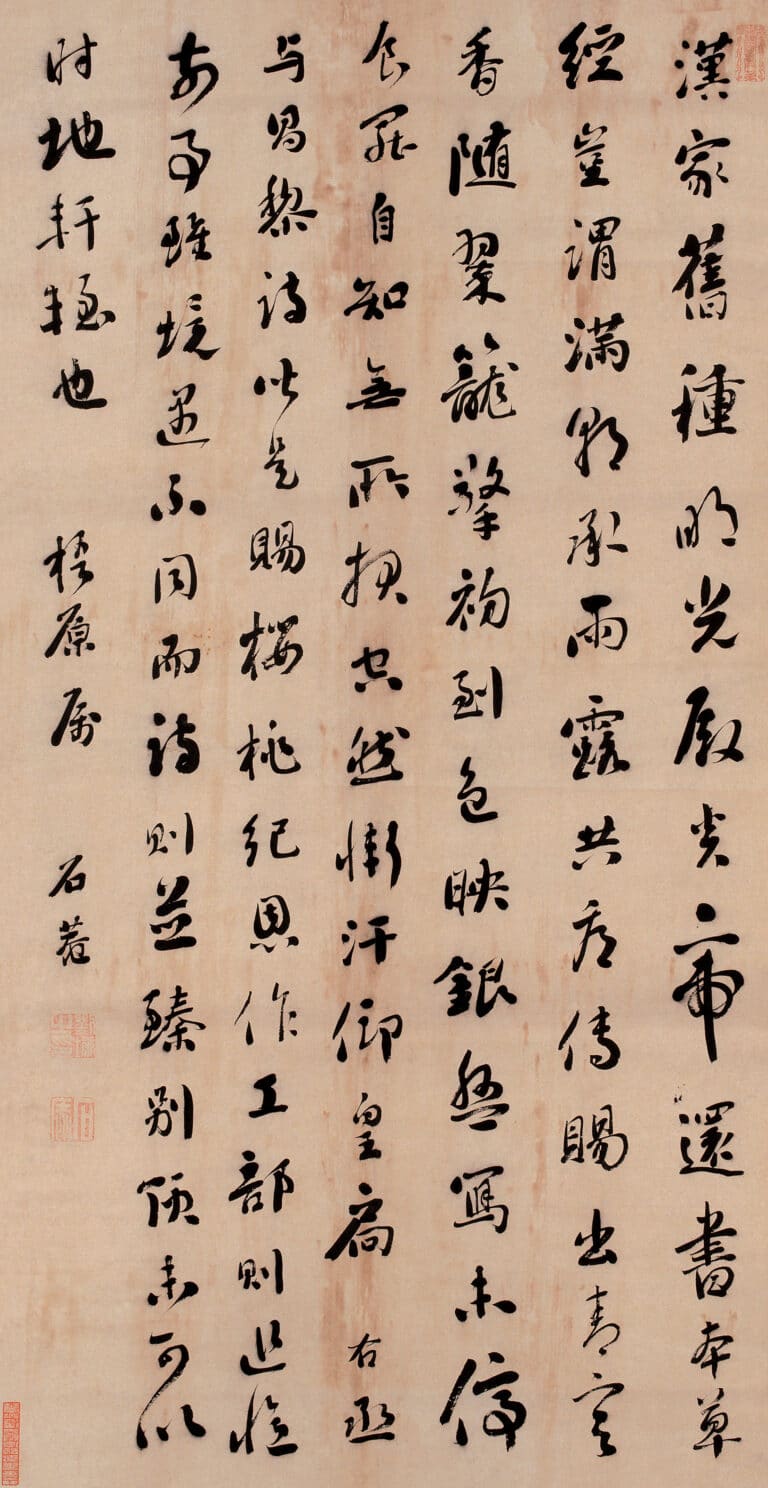 漢家舊種明光殿炎帝還書本草
經豈謂滿朝承雨露共看傳賜出青冥
香隨翠籠擎初到色映銀盤寫未停
食罷自知無所報空然慚汗仰皇扃 右丞
与昌黎詩皆是賜櫻桃紀恩作工部則追憶
前事雖境遇不同而詩則並臻未可以
时地軒輊也 梧原属 石菴